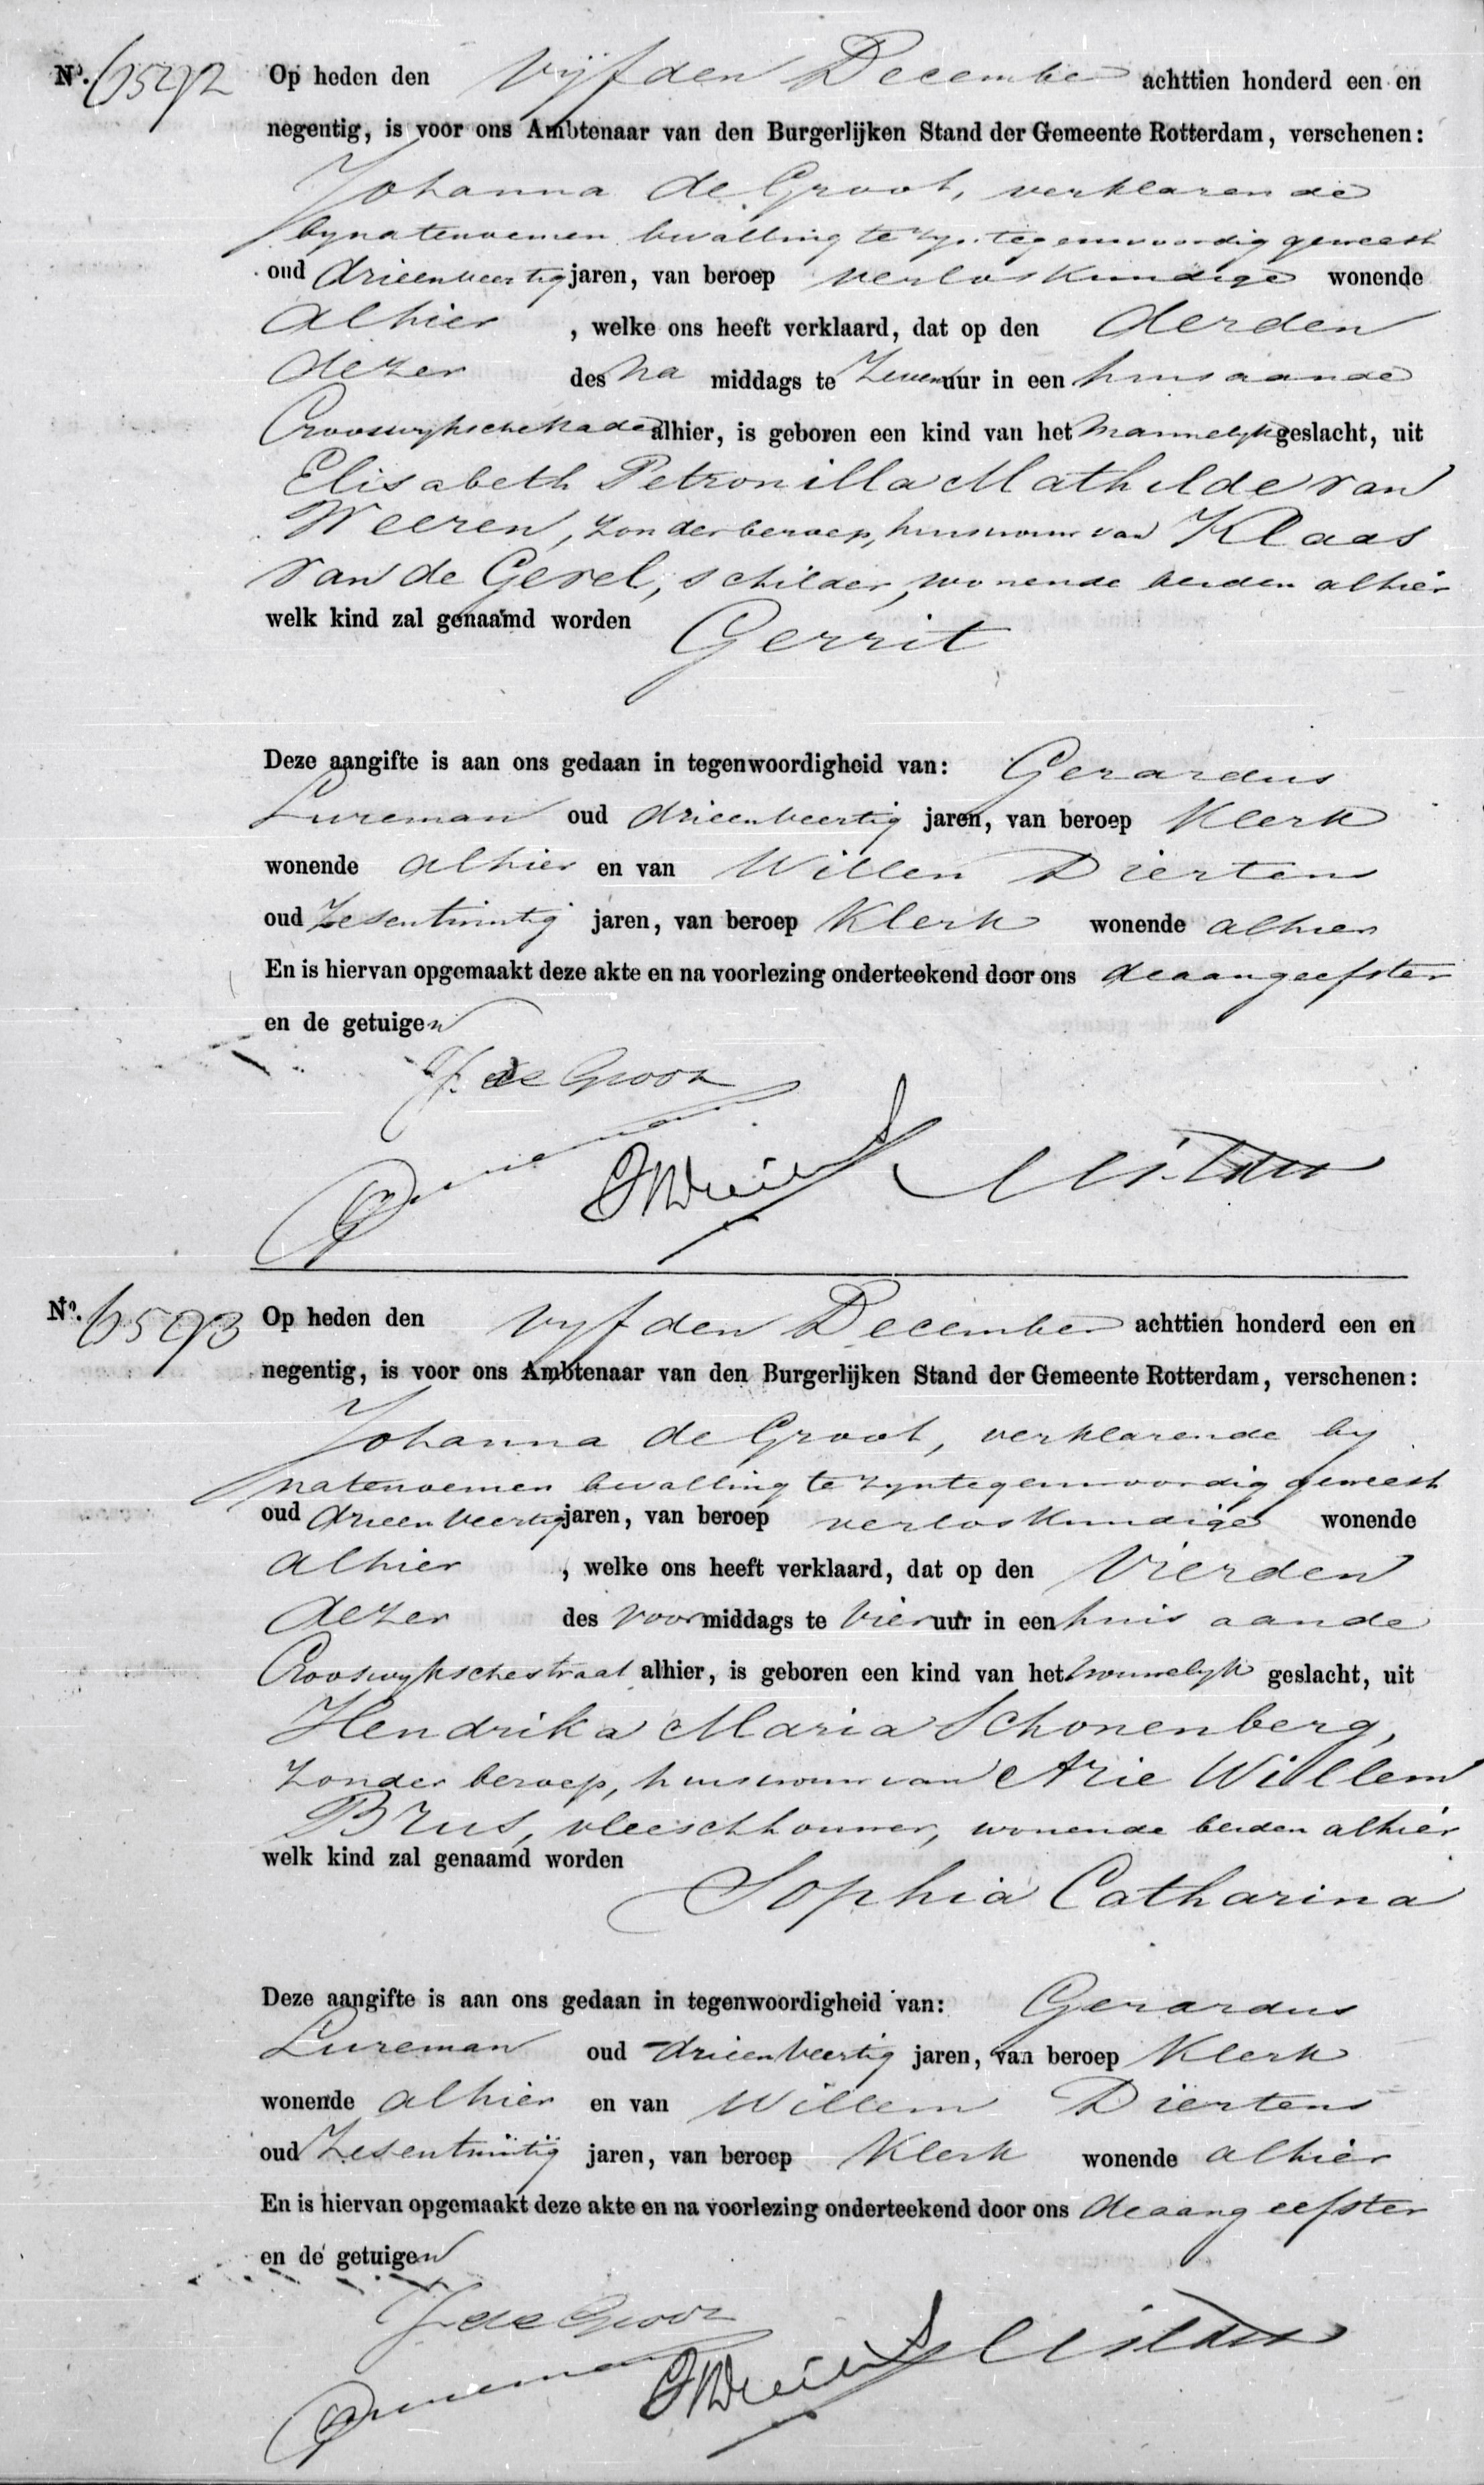 No. 6592 Op heden den vijfden December achttien honderd een en
negentig, is voor ons Ambtenaar van den Burgerlijken Stand der Gemeente Rotterdam, verschenen:
Johanna de Groot, verklarende
bij natenoemen bevalling te zijn tegenwoordig geweest
oud drieenveertig jaren, van beroep verloskundige wonende
alhier, welke ons heeft verklaard, dat op den derden
dezer des na middags te zeven uur in een huis aan de
Crooswijkschekade alhier, is geboren een kind van het mannelijk geslacht, uit
Elisabeth Petronilla Mathilde van
Weeren, zonder beroep, huisvrouw van Klaas
van de Gevel, schilder, wonende beiden alhier
welk kind zal genaamd worden Gerrit
Deze aangifte is aan ons gedaan in tegenwoordigheid van: Gerardus
Lureman oud drieenveertig jaren, van beroep klerk
wonende alhier en van Willem Diertens
oud zesentwintig jaren, van beroep klerk wonende alhier
En is hiervan opgemaakt deze akte en na voorlezing onderteekend door ons de aangeefster
en de getuigen
J. de Groot
No. 6593 Op heden den vijfden December achttien honderd een en
negentig, is voor ons Ambtenaar van den Burgerlijken Stand der Gemeente Rotterdam, verschenen:
Johanna de Groot, verklarende bij
natenoemen bevalling te zijn tegenwoordig geweest
oud drieenveertig jaren, van beroep verloskundige wonende
alhier, welke ons heeft verklaard, dat op den vierden
dezer des voormiddags te vier uur in een huis aan de
Crooswijkschestraat alhier, is geboren een kind van het vrouwelijk geslacht, uit
Hendrika Maria Schonenberg,
zonder beroep, huisvrouw van Arie Willem
Brus, vleeschhouwer, wonende beiden alhier
welk kind zal genaamd worden Sophia Catharina
Deze aangifte is aan ons gedaan in tegenwoordigheid van: Gerardus
Lureman oud drieenveertig jaren, van beroep klerk
wonende alhier en van Willem Diertens
oud zesentwintig jaren, van beroep klerk wonende alhier
En is hiervan opgemaakt deze akte en na voorlezing onderteekend door ons de aangeefster
en de getuigen
J. de Groot